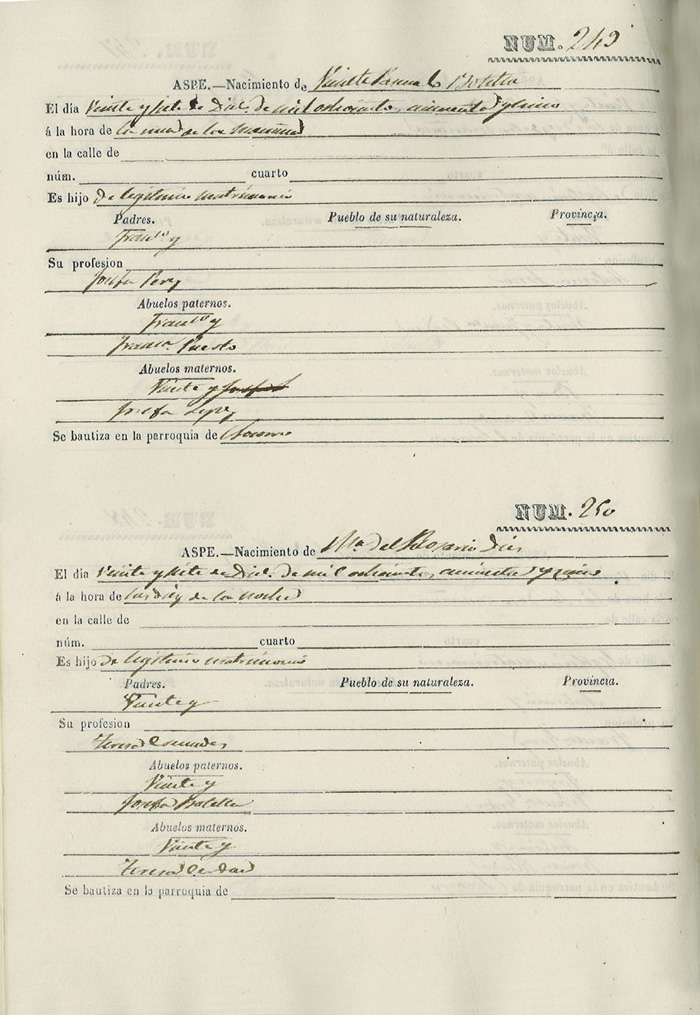 NUM. 249
ASPE.—Nacimiento de Vicente Botella
El día Veinte y siete de Dic.e de mil ochocientos cincuenta y cinco
á la hora de las nueve de la mañana
en la calle de
núm. cuarto
Es hijo de legítimo matrimonio
Padres. Pueblo de su naturaleza. Provincia.
Fran.co y
Su profesion
Josefa Perez
Abuelos paternos.
Fran.co y
Fran.ca Puerto
Abuelos maternos.
Vicente y
Josefa Lopez
Se bautiza en la parroquia de
NUM. 250
ASPE.—Nacimiento de M.a del Rosario Dies
El día Veinte y siete de Dic.e de mil ochocientos cincuenta y cinco
á la hora de las diez de la noche
en la calle de
núm. cuarto
Es hijo de legítimo matrimonio
Padres. Pueblo de su naturaleza. Provincia.
Vicente y
Su profesion
Teresa
Abuelos paternos.
Vicente y
Josefa Botella
Abuelos maternos.
Vicente y
Teresa
Se bautiza en la parroquia de